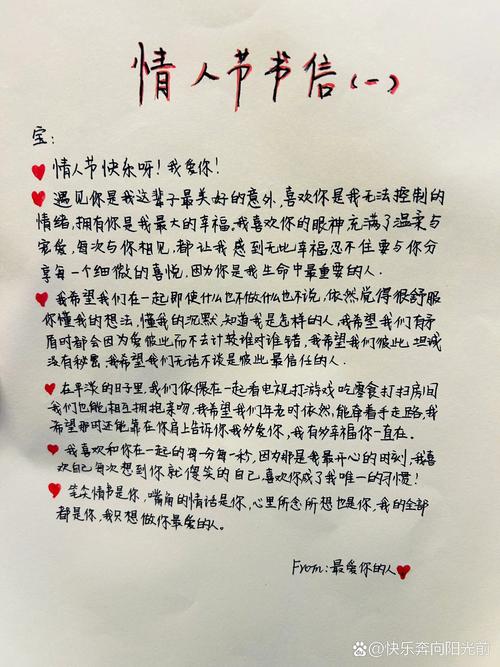 情人节书信(一)
宝:
情人节快乐呀!我爱你!
遇见你是我这辈子最美好的意外,喜欢你是我无法控制的
情绪,拥有你是我最大的幸福。我喜欢你的眼神充满了温柔与
宠爱,每次与你相见,都让我感到无比幸福忍不住要与你分
享每一个细微的喜悦,因为你是我生命中最重要的人.
我希望我们在一起即使什么也不做什么也不说,依然觉得很舒服
你懂我的想法,懂我的沉默,知道我是怎样的人,我希望我们有矛
盾时都会因为爱彼此而不去计较谁对谁错,我希望我们彼此坦诚
没有秘密,我希望我们无话不谈是彼此最信任的人.
在平淡的日子里,我们依偎在一起看电视打游戏吃零食打扫房间
我们也能相互拥抱亲吻,我希望我们年老时依然,能牵着手走路,我
希望那时还能靠在你肩上告诉你我多爱你,我有多幸福你一直在.
我喜欢和你在一起的每一分每一秒,因为那是我最开心的时刻,我喜
欢自己每次想到你就傻笑的自己,喜欢你成了我唯一的习惯!
笔尖情书是你,嘴角的情话是你,心里所念所想也是你,我的全部
都是你,我只想做你最爱的人。
From:最爱你的人
百家号@快乐奔向阳光前